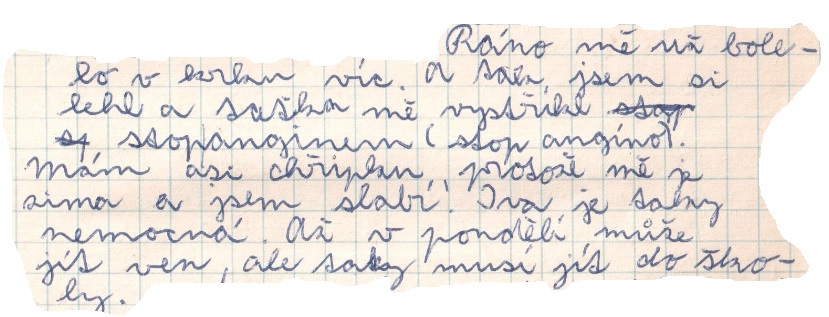 Ráno mě už bole-
lo v krku víc. A tak jsem si
lehl a taťka mě vystříkl stop
st stopanginem (stop angíno).
Mám asi chřipku, protože mě je
zima a jsem slabí. Iva je taky
nemocná. Až v pondělí může
jít ven, ale taky musí jít do ško-
ly.